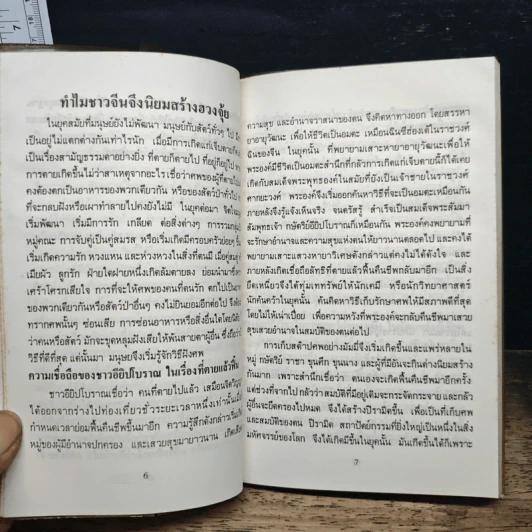 ทำไมชาวจีนจึงนิยมสร้างฮวงจุ้ย
ในยุคสมัยที่มนุษย์ยังไม่พัฒนา มนุษย์กับสัตว์ทั่วๆ ไป
เป็นอยู่ไม่แตกต่างกันเท่าไรนัก เมื่อมีการเกิดแก่เจ็บตาย
เป็นเรื่องสามัญธรรมดาอย่างยิ่ง ที่ตายก็ตายไป ที่อยู่ก็อยู่ไป
การตายเกิดขึ้นไม่ว่าสาเหตุจากอะไรเชื่อว่าศพของผู้ที่ตาย
คงต้องตกเป็นอาหารของพวกเดียวกัน หรือของสัตว์ป่าทั่วไป
ที่จะกลบฝังหรือเผาทำลายคงยังไม่มี ในยุคต่อมา
เริ่มพัฒนา เริ่มมีการรัก เกลียด ต่อสิ่งต่างๆ
หมู่คณะ การจับคู่เป็นคู่สมรส หรือเริ่มเกิดมีครอบครัว
เริ่มเกิดความรัก หวงแหน และห่วงหวงในสิ่งที่ตนมี
เมียผัว ลูกรัก ฝ่ายใดฝ่ายหนึ่งเกิดล้มตายลง
เศร้าโศกเสียใจ การที่จะให้ศพของคนที่ตนรัก
ของพวกเดียวกันหรือสัตว์ป่าอื่นๆ คงไม่ยินยอมอีกต่อไป
ทรากศพนั้นๆ ซ่อนเสีย การซ่อนอาหารหรือสิ่งอื่นใดโดย
ว่าคนหรือสัตว์ มักจะขุดหลุมฝังเสียให้พ้นสายตาผู้อื่น
วิธีที่ดีที่สุด แต่นั้นมา มนุษย์จึงเริ่มรู้จักวิธีฝังศพ
ความเชื่อถือของชาวอียิปโบราณ ในเรื่องที่ตายแล้วฟื้น
ชาวอียิปโบราณเชื่อว่า คนที่ตายไปแล้ว เสมือนจิต
ได้ออกจากร่างไปท่องเที่ยวชั่วระยะเวลาหนึ่งเท่านั้น
กำหนดเวลาย่อมฟื้นคืนชีพขึ้นมาอีก ความรู้สึกดังกล่าว
หมู่ของผู้มีอำนาจปกครอง และเสวยสุขมายาวนาน
6
ความสุข และอำนาจวาสนาของตน จึงคิดหาทางออก โดยสรรหา
ยาอายุวัฒนะ เพื่อให้ชีวิตเป็นอมตะ เหมือนฉินซีฮ่องเต้ในราชวงศ์
ฉินของจีน ในยุคนั้น ที่พยายามเสาะหายาอายุวัฒนะเพื่อให้
พระองค์มีชีวิตเป็นอมตะสำนึกที่กลัวการเกิดแก่เจ็บตายนี้ก็ได้เคย
เกิดกับสมเด็จพระพุทธองค์ในสมัยที่ยังเป็นเจ้าชายในราชวงศ์
ศากยะวงศ์ พระองค์จึงเริ่มออกค้นหาวิธีที่จะเป็นอมตะเหมือนกัน
ภายหลังจึงรู้แจ้งเห็นจริง จนตรัสรู้ สำเร็จเป็นสมเด็จพระสัมมา
สัมพุทธเจ้า กษัตริย์อียิปโบราณก็เหมือนกัน พระองค์คงพยายามที่
จะรักษาอำนาจและความสุขแห่งตนให้ยาวนานตลอดไป และคงได้
พยายามเสาะแสวงหายาวิเศษดังกล่าวแต่คงไม่เกิดความสำเร็จ และ
ภายหลังเกิดเชื่อถือลัทธิที่ตายแล้วฟื้นคืนชีพกลับมาอีก เป็นสิ่ง
ยึดเหนี่ยวจึงได้ทุ่มเททรัพย์ให้นักเคมี หรือนักวิทยาศาสตร์
นักค้นคว้าในยุคนั้น ค้นคิดหาวิธีเก็บรักษาศพให้มีสภาพดีที่สุด
โดยไม่ให้เน่าเปื่อย เพื่อความหวังที่พระองค์จะกลับคืนชีพมาเสวย
สุขเสวยอำนาจในสมบัติของตนต่อไป
การเก็บสต๊าปศพอย่างมัมมี่จึงเริ่มเกิดขึ้นและแพร่หลายใน
หมู่ กษัตริย์ ราชา ขุนศึก ขุนนาง และผู้ที่มีอันจะกินต่างนิยมสร้าง
กันมาก เพราะสำนึกเชื่อว่า ตนเองจะเกิดฟื้นคืนชีพมาอีกครั้ง
แต่ช่วงที่จากไป กลัวว่าสมบัติที่มีอยู่เดิมจะกระจัดกระจาย และกลัว
ผู้อื่นจะยึดครองไปหมด จึงได้สร้างปิรามิดขึ้น เพื่อเป็นที่เก็บศพ
และสมบัติของตน ปิรามิด สถาปัตย์กรรมที่ยิ่งใหญ่เป็นหนึ่งในสิ่ง
มหัศจรรย์ของโลก จึงได้เกิดมีขึ้นในยุคนั้น มันเกิดขึ้นได้ก็เพราะ
7